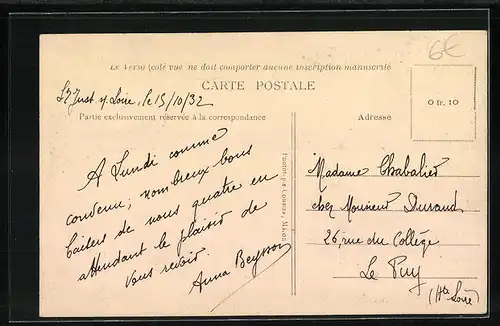 6€
Le Verso (côté vue ne doit comporter aucune inscription manuscrite
CARTE POSTALE
St Just s/ Loire, le 15/10/32
0 fr. 10
Partie exclusivement réservée à la correspondance
Adresse
A Lundi comme
convenu; nombreux bons
baisers de nous quatre en
attendant le plaisir de
vous revoir.
Anna Beysson
Madame Chabalier
chez Monsieur Durand
26, rue du Collège
Le Puy
(Hte Loire)